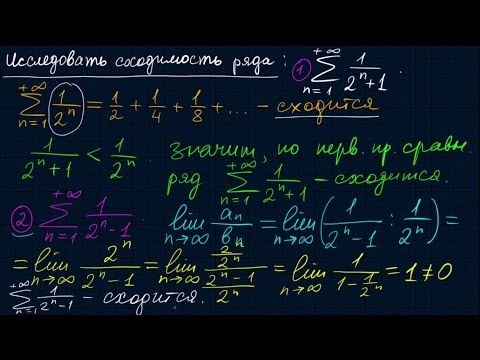 Исследовать сходимость ряда: ① \sum_{n=1}^{+\infty} \frac{1}{2^n+1}.
\sum_{n=1}^{+\infty} \frac{1}{2^n} = \frac{1}{2} + \frac{1}{4} + \frac{1}{8} + ... - сходится
\frac{1}{2^n+1} < \frac{1}{2^n}. Значит, по перв. пр. сравн.
ряд \sum_{n=1}^{+\infty} \frac{1}{2^n+1} - сходится.
② \sum_{n=1}^{+\infty} \frac{1}{2^n-1}. \lim_{n→∞} \frac{a_n}{b_n} = \lim_{n→∞} (\frac{1}{2^n-1} : \frac{1}{2^n}) =
= \lim_{n→∞} \frac{2^n}{2^n-1} = \lim_{n→∞} \frac{\frac{2^n}{2^n}}{\frac{2^n-1}{2^n}} = \lim_{n→∞} \frac{1}{1-\frac{1}{2^n}} = 1 ≠ 0
\sum_{n=1}^{+\infty} \frac{1}{2^n-1} - сходится.